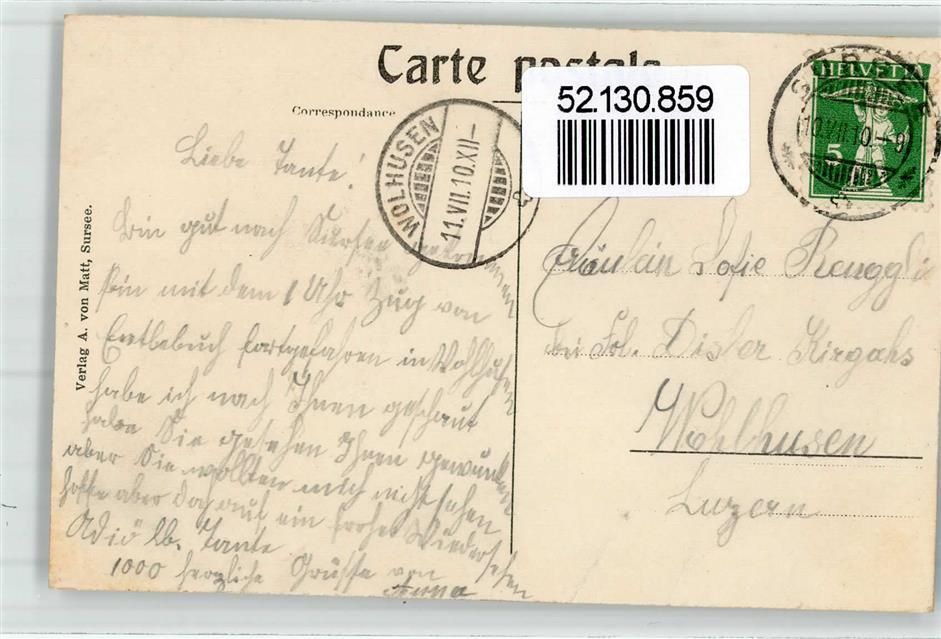 Carte postale
Correspondance
52.130.859
HELVETIA
5
10.VII.10.-9
WOLHUSEN
11.VII.10.XII-
Verlag A. von Matt, Sursee.
Liebe Tante!
Bin gut nach Sursee gekommen
bin mit dem 1 Uhr Zug von
Entlebuch fortgefahren in Wohlhusen
habe ich nach Ihnen geschaut
habe Sie gesehen Ihnen gewunken
aber Sie wollten mich nicht sehen
hoffe aber doch auf ein frohes Wiedersehen
Adiö lb. Tante
1000 herzliche Grüsse von
Anna
Fräulein Sofie Renggli
bei Frl. Disler Kirgahs
Wohlhusen
Luzern